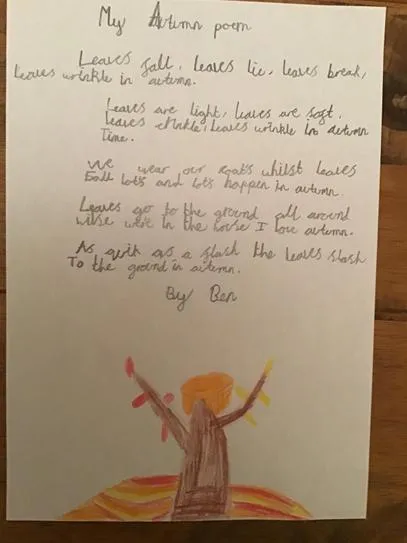 My Autumn poem
Leaves fall, leaves lie, leaves break,
leaves wrinkle in autumn.
Leaves are light, leaves are soft,
leaves crinkle, leaves wrinkle in autumn
Time.
We wear our coats whilst leaves
Fall lots and lots happen in autumn.
Leaves go to the ground all around
we're in the house I love autumn.
As quik as a slash the leaves slash
To the ground in autumn.
By Ben